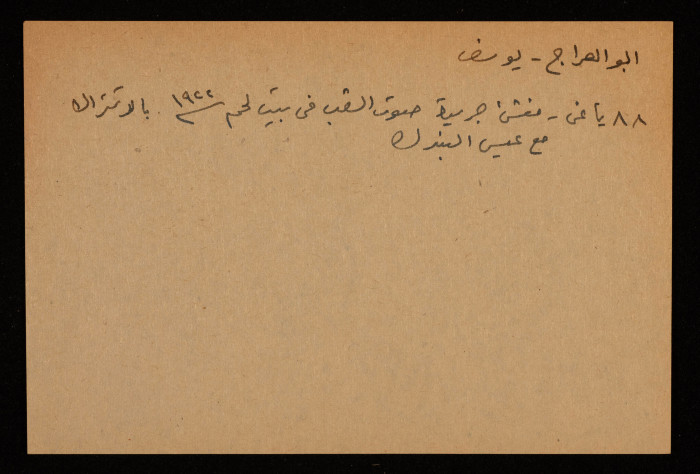 ابو العراج - يوسف
٨٨ ياغي - منشئ جريدة صوت الشعب في بيت لحم ١٩٢٢ بالاشتراك
مع عيسى البندك